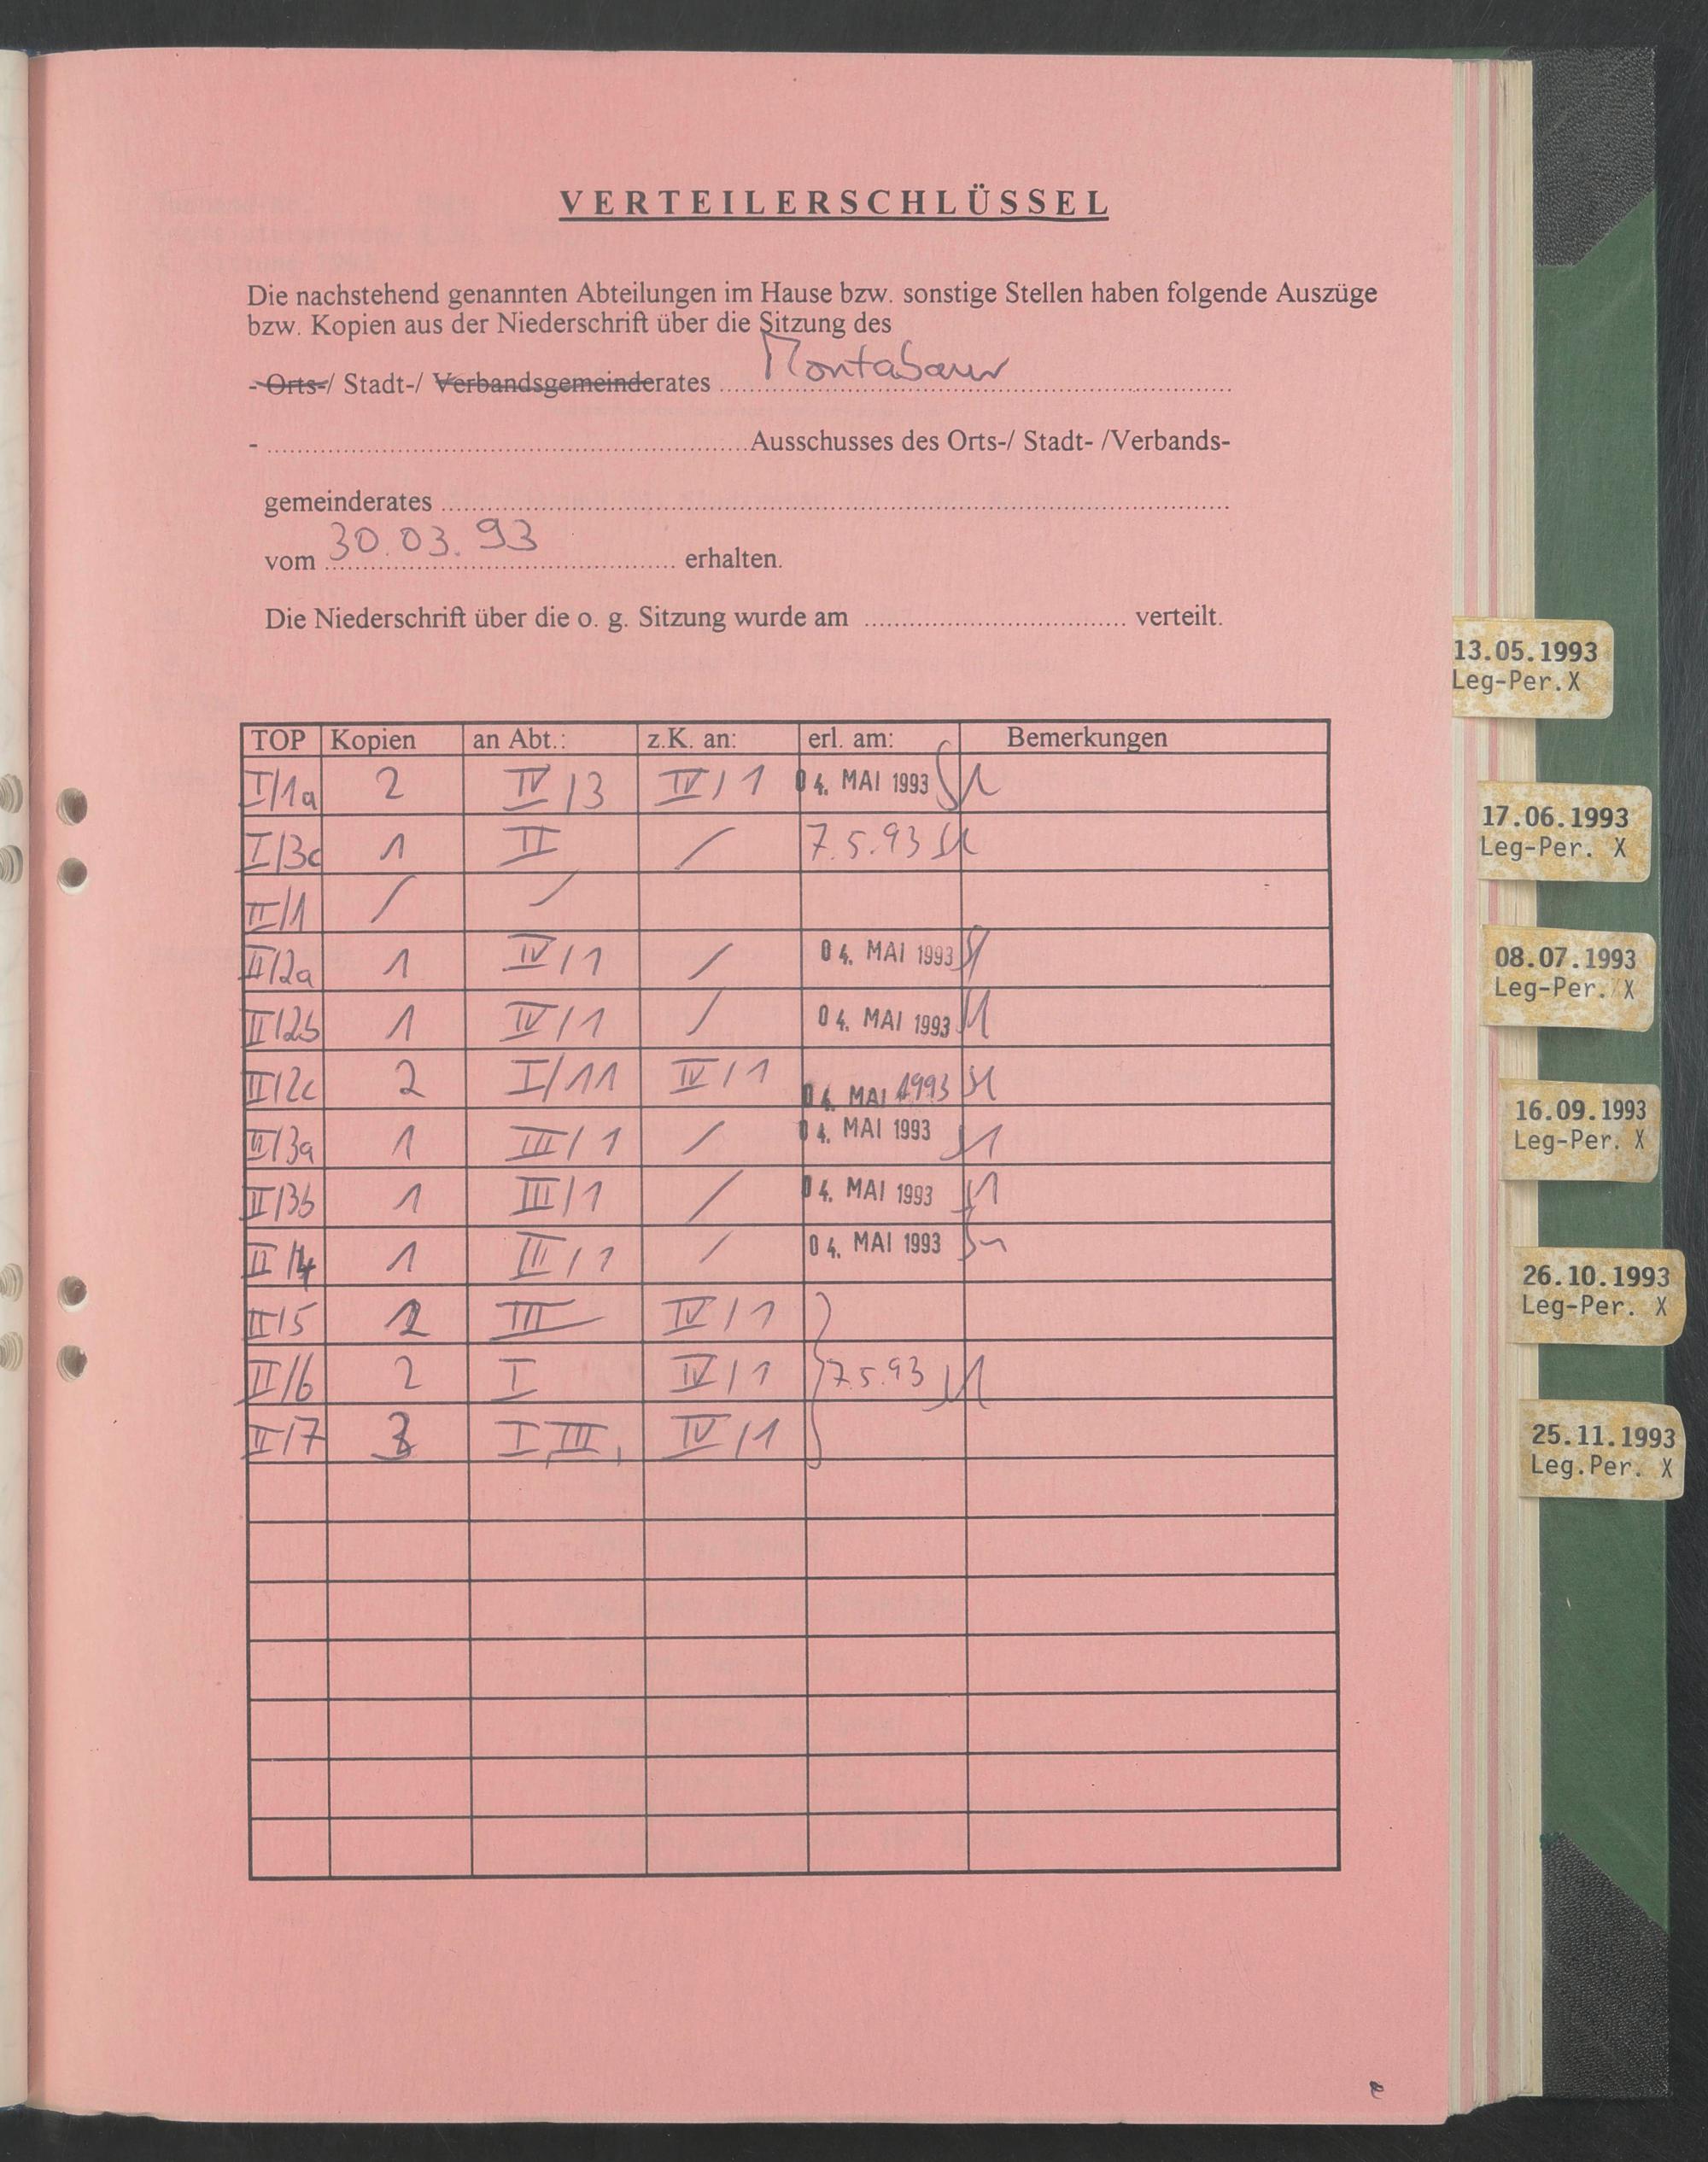 VERTEILERSCHLÜSSEL
Die nachstehend genannten Abteilungen im Hause bzw. sonstige Stellen haben folgende Auszüge
bzw. Kopien aus der Niederschrift über die Sitzung des
- Orts-/ Stadt-/ Verbandsgemeinderates Montabaur
- ........ Ausschusses des Orts-/ Stadt- /Verbands-
gemeinderates ........
vom 30.03.93 erhalten.
Die Niederschrift über die o. g. Sitzung wurde am ........ verteilt.
TOP Kopien an Abt.: z.K. an: erl. am: Bemerkungen
I/1a 2 IV/3 IV/1 04. MAI 1993
I/3c 1 II / 7.5.93
II/1 / /
II/2a 1 IV/1 / 04. MAI 1993
II/2b 1 IV/1 / 04. MAI 1993
II/2c 2 I/11 IV/1 04. MAI 1993
II/3a 1 III/1 / 04. MAI 1993
II/3b 1 III/1 / 04. MAI 1993
II/4 1 III/1 / 04. MAI 1993
II/5 2 III IV/1
II/6 2 I IV/1 7.5.93
II/7 3 I, III, IV/1
13.05.1993
Leg-Per.X
17.06.1993
Leg-Per. X
08.07.1993
Leg-Per. X
16.09.1993
Leg-Per. X
26.10.1993
Leg-Per. X
25.11.1993
Leg.Per. X